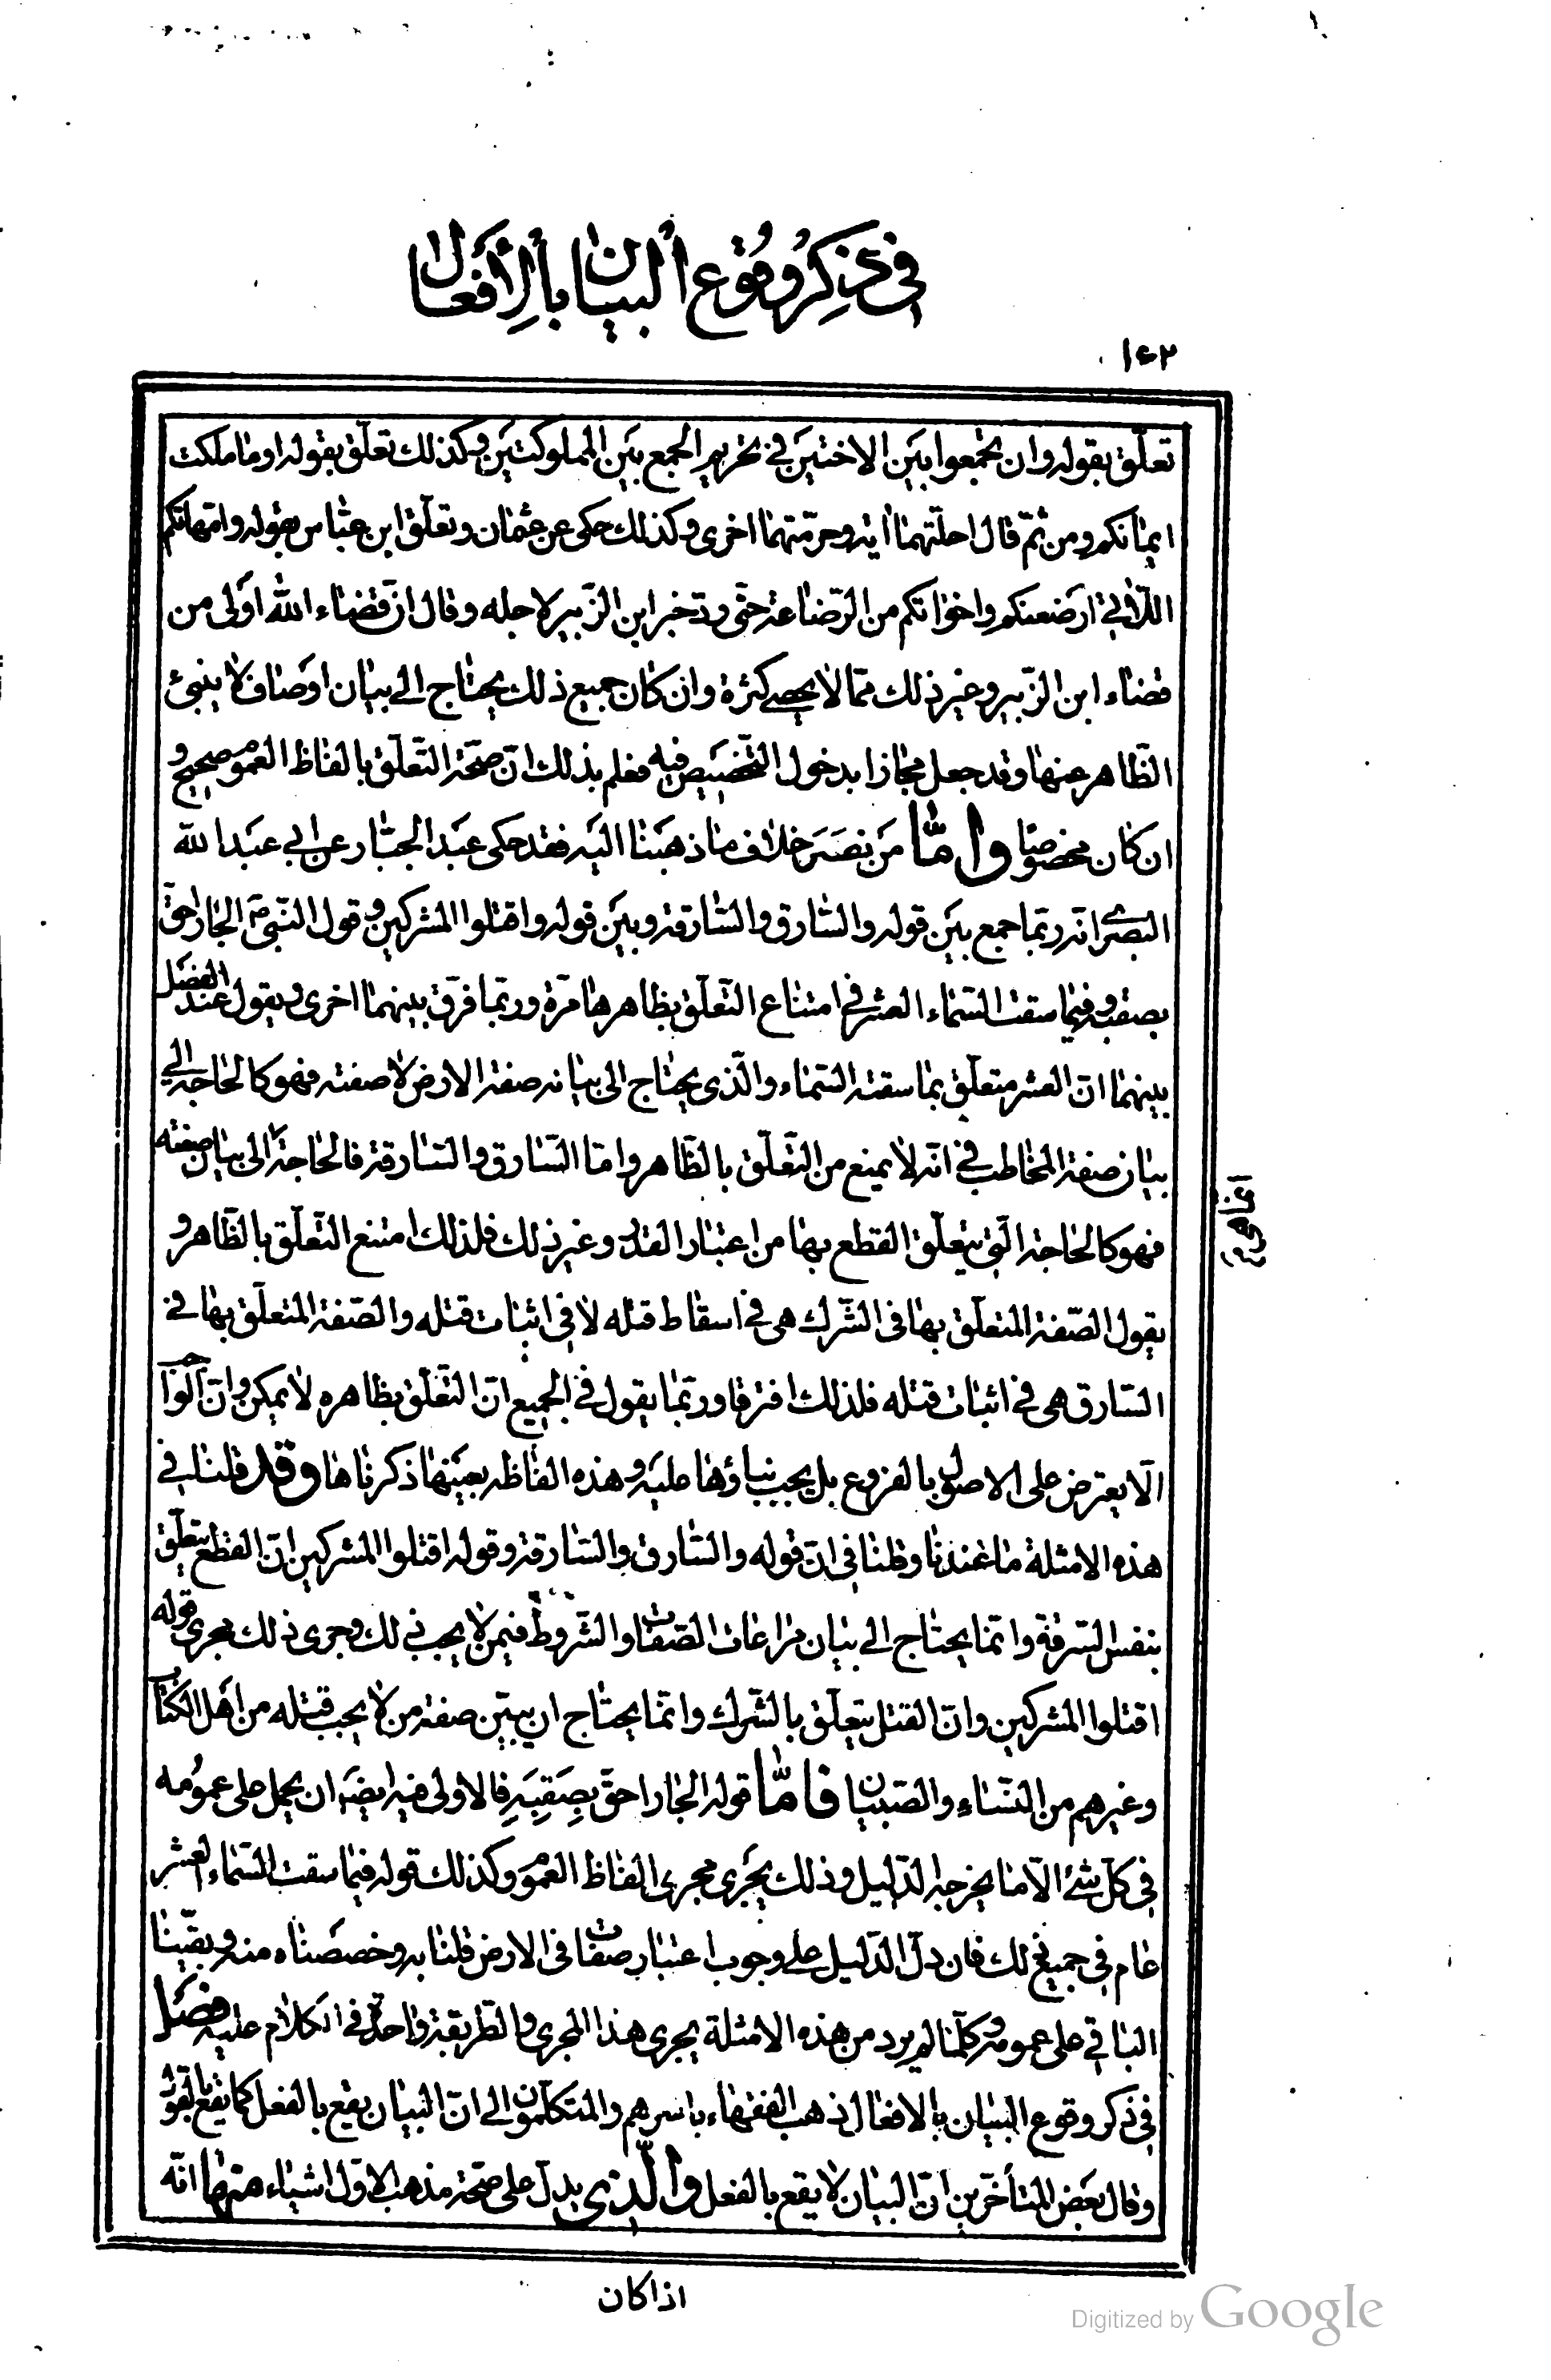 في ذِكرِ وقوع البيان بالأفعال
١٤٢
تعلّق بقوله وان تجمعوا بين الاختين في تحريم الجمع بين المملوكتين وكذلك تعلّق بقوله او ما ملكت
ايمانكم ومن ثمّ قال احلّتهما اية وحرمتهما اخرى وكذلك حكى عن عثمان وتعلّق ابن عبّاس بقوله وامّهاتكم
اللّاتي ارضعنكم واخواتكم من الرّضاعة حتّى ردّ خبر ابن الزّبير لاجله وقال انّ قضاء الله اولى من
قضاء ابن الزّبير وغير ذلك ممّا لا يحصى كثرة وان كان جميع ذلك يحتاج الى بيان اوصاف لا ينبئ
الظّاهر عنها وقد جعل مجازا بدخول التّخصيص فيه فعلم بذلك انّ صحّة التّعلّق بالفاظ العموم صحيح و
ان كان مخصوصا وامّا من نصر خلاف ما ذهبنا اليه فقد حكى عبد الجبّار عن ابي عبد الله
البصرى انّه ربّما جمع بين قوله والسّارق والسّارقة وبين قوله واقتلوا المشركين و قول النّبيّ صم الجار احقّ
بصقبه وفيما سقت السّماء العشر في امتناع التّعلّق بظاهرها مرّة وربّما فرّق بينهما اخرى ويقول عند الفصل
بينهما انّ العشر متعلّق بما سقته السّماء والّذي يحتاج الى بيانه صفة الارض لا صفته فهو كالحاجة الى
بيان صفة المخاطب في انّه لا يمنع من التّعلّق بالظّاهر وامّا السّارق والسّارقة فالحاجة الى بيان صفته
فهو كالحاجة الّتي يتعلّق القطع بها من اعتبار القدر وغير ذلك فلذلك امتنع التّعلّق بالظّاهر و
يقول الصّفة المتعلّق بها في الشّرك هي في اسقاط قتله لا في اثبات قتله والصّفة المتعلّق بها في
السّارق هي في اثبات قتله فلذلك افترقا وربّما يقول في الجميع انّ التّعلّق بظاهره لا يمكن وانّ الواجب
الّا يعترض على الاصول بالفروع بل يجب بناؤها عليه و هذه الفاظه بعينها ذكرناها وقد قلنا في
هذه الامثلة ما عندنا وقلنا في انّ قوله والسّارق والسّارقة وقوله اقتلوا المشركين انّ القطع يتعلّق
بنفس السّرقة وانّما يحتاج الى بيان مراعات الصّفات والشّروط فيمن لا يجب ذلك وجرى ذلك مجرى قوله
اقتلوا المشركين وانّ القتل يتعلّق بالشّرك وانّما يحتاج ان يبيّن صفة من لا يجب قتله من اهل الكتاب
وغيرهم من النّساء والصّبيان فامّا قوله الجار احقّ بصِقبِه فالاولى فيه ايضا ان يحمل على عمومه
في كلّ شئ الّا ما يخرجه الدّليل وذلك يجرى مجرى الفاظ العموم وكذلك قوله فيما سقت السّماء العشر
عام في جميع ذلك فان دلّ الدّليل على وجوب اعتبار صفات في الارض قلنا به وخصصناه منه وبقّينا
الباقي على عمومه وكلّما لم يرد من هذه الامثلة يجرى هذا المجرى والطريقة واحدة في الكلام عليه فصل
في ذكر وقوع البيان بالافعال ذهب الفقهاء باسرهم والمتكلّمون الى انّ البيان يقع بالفعل كما يقع بالقول
وقال بعض المتأخّرين انّ البيان لا يقع بالفعل والّذى يدلّ على صحّة مذهب الاوّل اشياء منها انّه
اذا كان